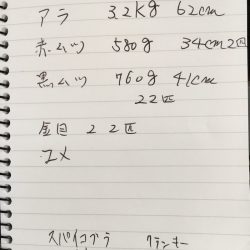 アラ 3.2kg 62cm
赤ムツ 580g 34cm 2匹
黒ムツ 760g 41cm
22匹
金目 22匹
ユメ
スパイコブラ クランキー